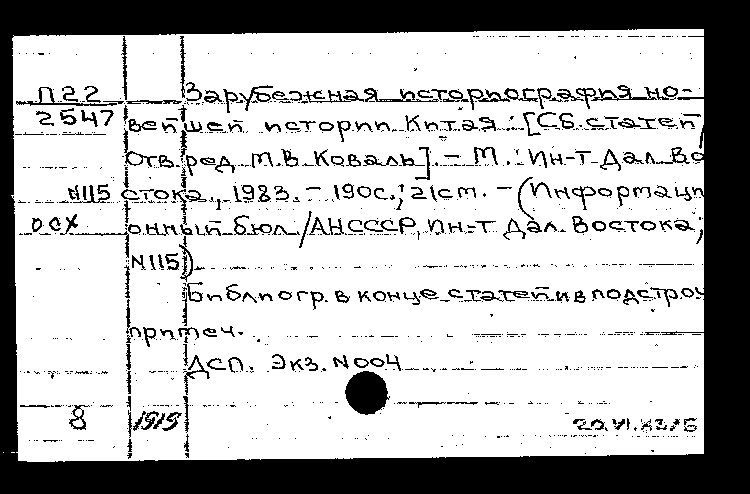 П22 Зарубежная историография но-
2547 вейшей истории Китая: [Сб. статей /
Отв. ред. М.В. Коваль]. – М.: Ин-т Дал. Во
N115 стока, 1983. – 190с.; 21см. – (Информаци
ОСХ онный бюл / АН СССР, Ин-т Дал. Востока;
N115)
Библиогр. в конце статей и в подстроч
примеч.
ДСП. Экз. N004
8 1919